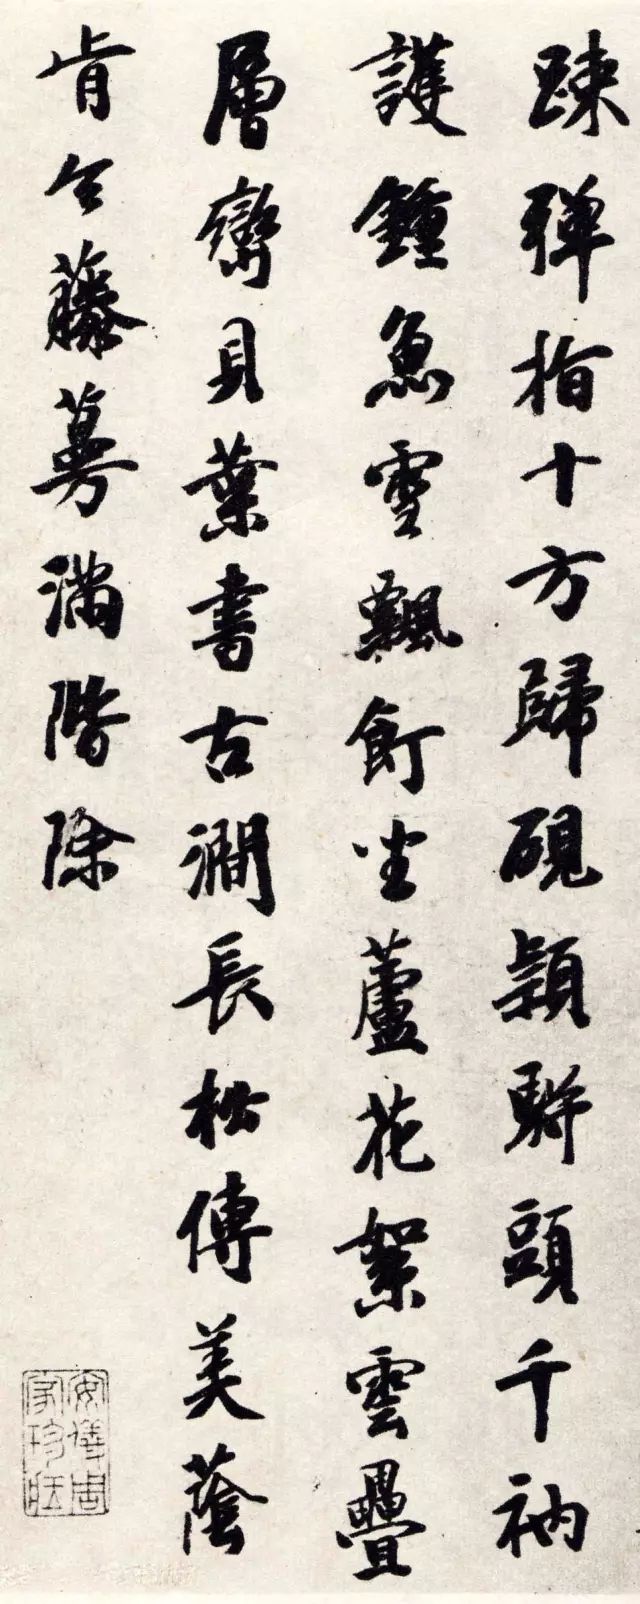 踈彈指十方歸硯頴駢頭千衲
護鍾魚雪飄飣坐蘆花絮雲疊
層巒貝葉書古澗長松傳美蔭
肯令藤蔓滿階除
安儀周家珍藏